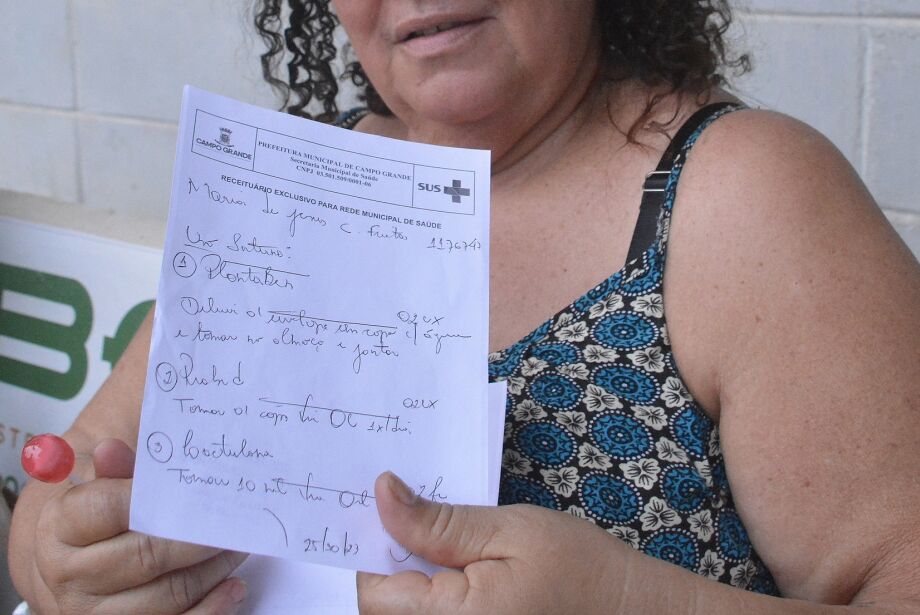 CAMPO GRANDE
PREFEITURA MUNICIPAL DE CAMPO GRANDE
Secretaria Municipal de Saúde
CNPJ 03.501.509/0001-06
SUS
RECEITUÁRIO EXCLUSIVO PARA REDE MUNICIPAL DE SAÚDE
Maria de Jesus C. Freitas
Uso Interno:
1 Plantaben
02 cx
Diluir 01 envelope em copo c/ água
e tomar no almoço e jantar
2
02 cx
Tomar 01 caps via 1x/dia
3 Lactulona
Tomar 10 ml via
B